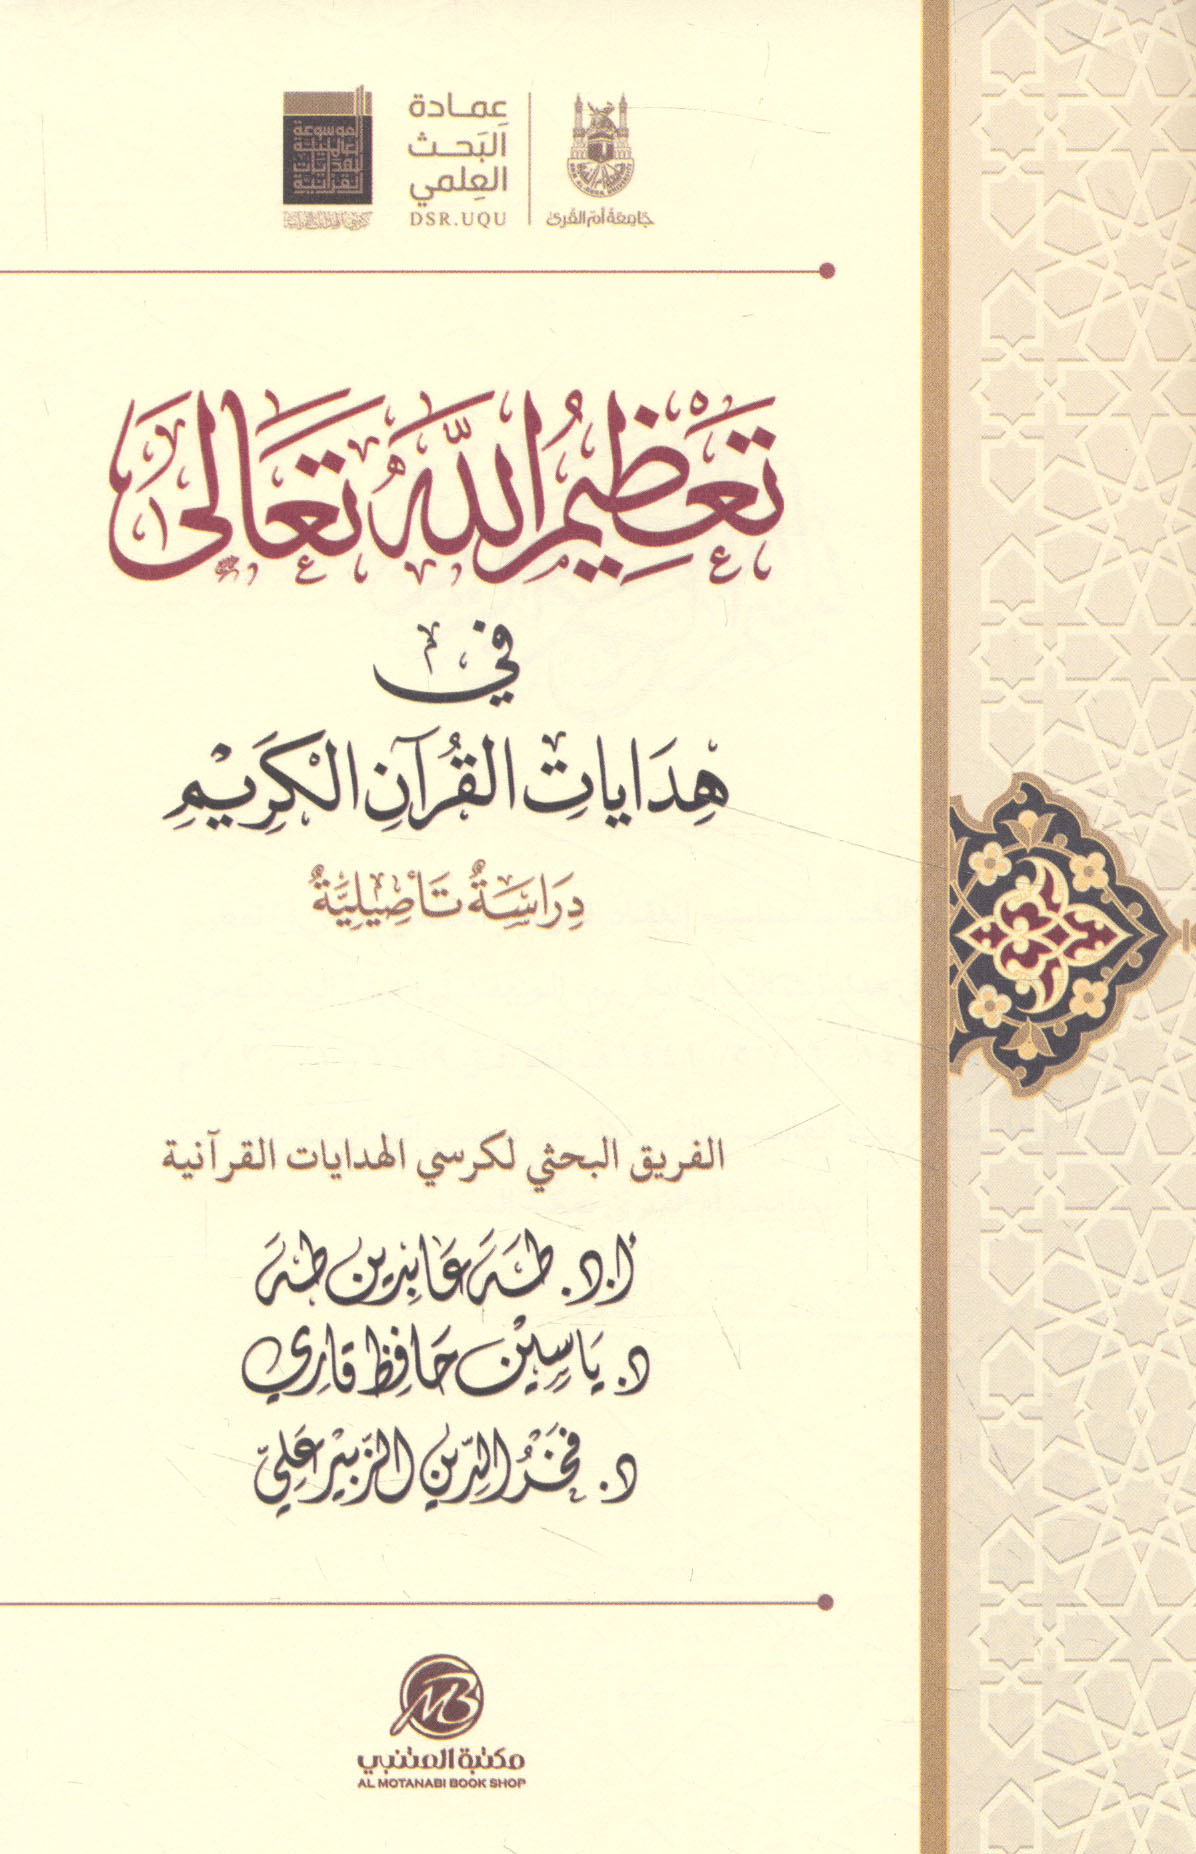 جَامِعَة أم القرى
UMM AL-QURA UNIVERSITY
عِمـادة
البَحـث
العِلمي
DSR.UQU
الموسوعة
العالمية
للهدايات
القرآنية
تَعْظِيمُ اللَّهِ تَعَالَى
في
هِدَايَاتِ القُرْآنِ الْكَرِيْمِ
دِرَاسَةٌ تَأصِيلِيَّةٌ
الفريق البحثي لكرسي الهدايات القرآنية
أ.د. طَهَ عَابِدِين طَهَ
د. يَاسِيْن حَافِظ قَارِي
د. فَخْرُ الدِّينِ الزُّبَيْر عَلِيّ
مكتبة المتنبي
AL MOTANABI BOOK SHOP